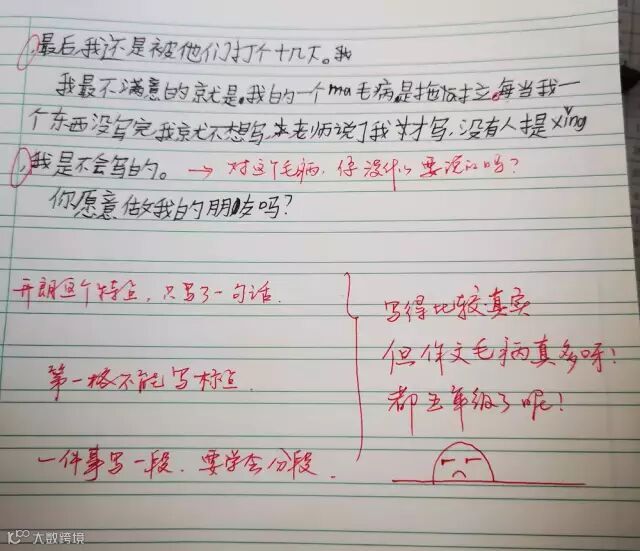 ，最后，我还是被他们打个十几下。我
我最不满意的就是，我的一个ma毛病是拖拉拉，每当我一
个东西没写完，我就不想写，老师说了我才写，没有人提xǐng
，我是不会写的。→对这个毛病，你没什么要说的吗？
你愿意做我的朋友吗？
开朗这个特点，只写了一句话.
第一格不能写标点.
一件事写一段. 要学会分段.
写得比较真实
但作文毛病真多呀！
都五年级了呢！
大数跨境